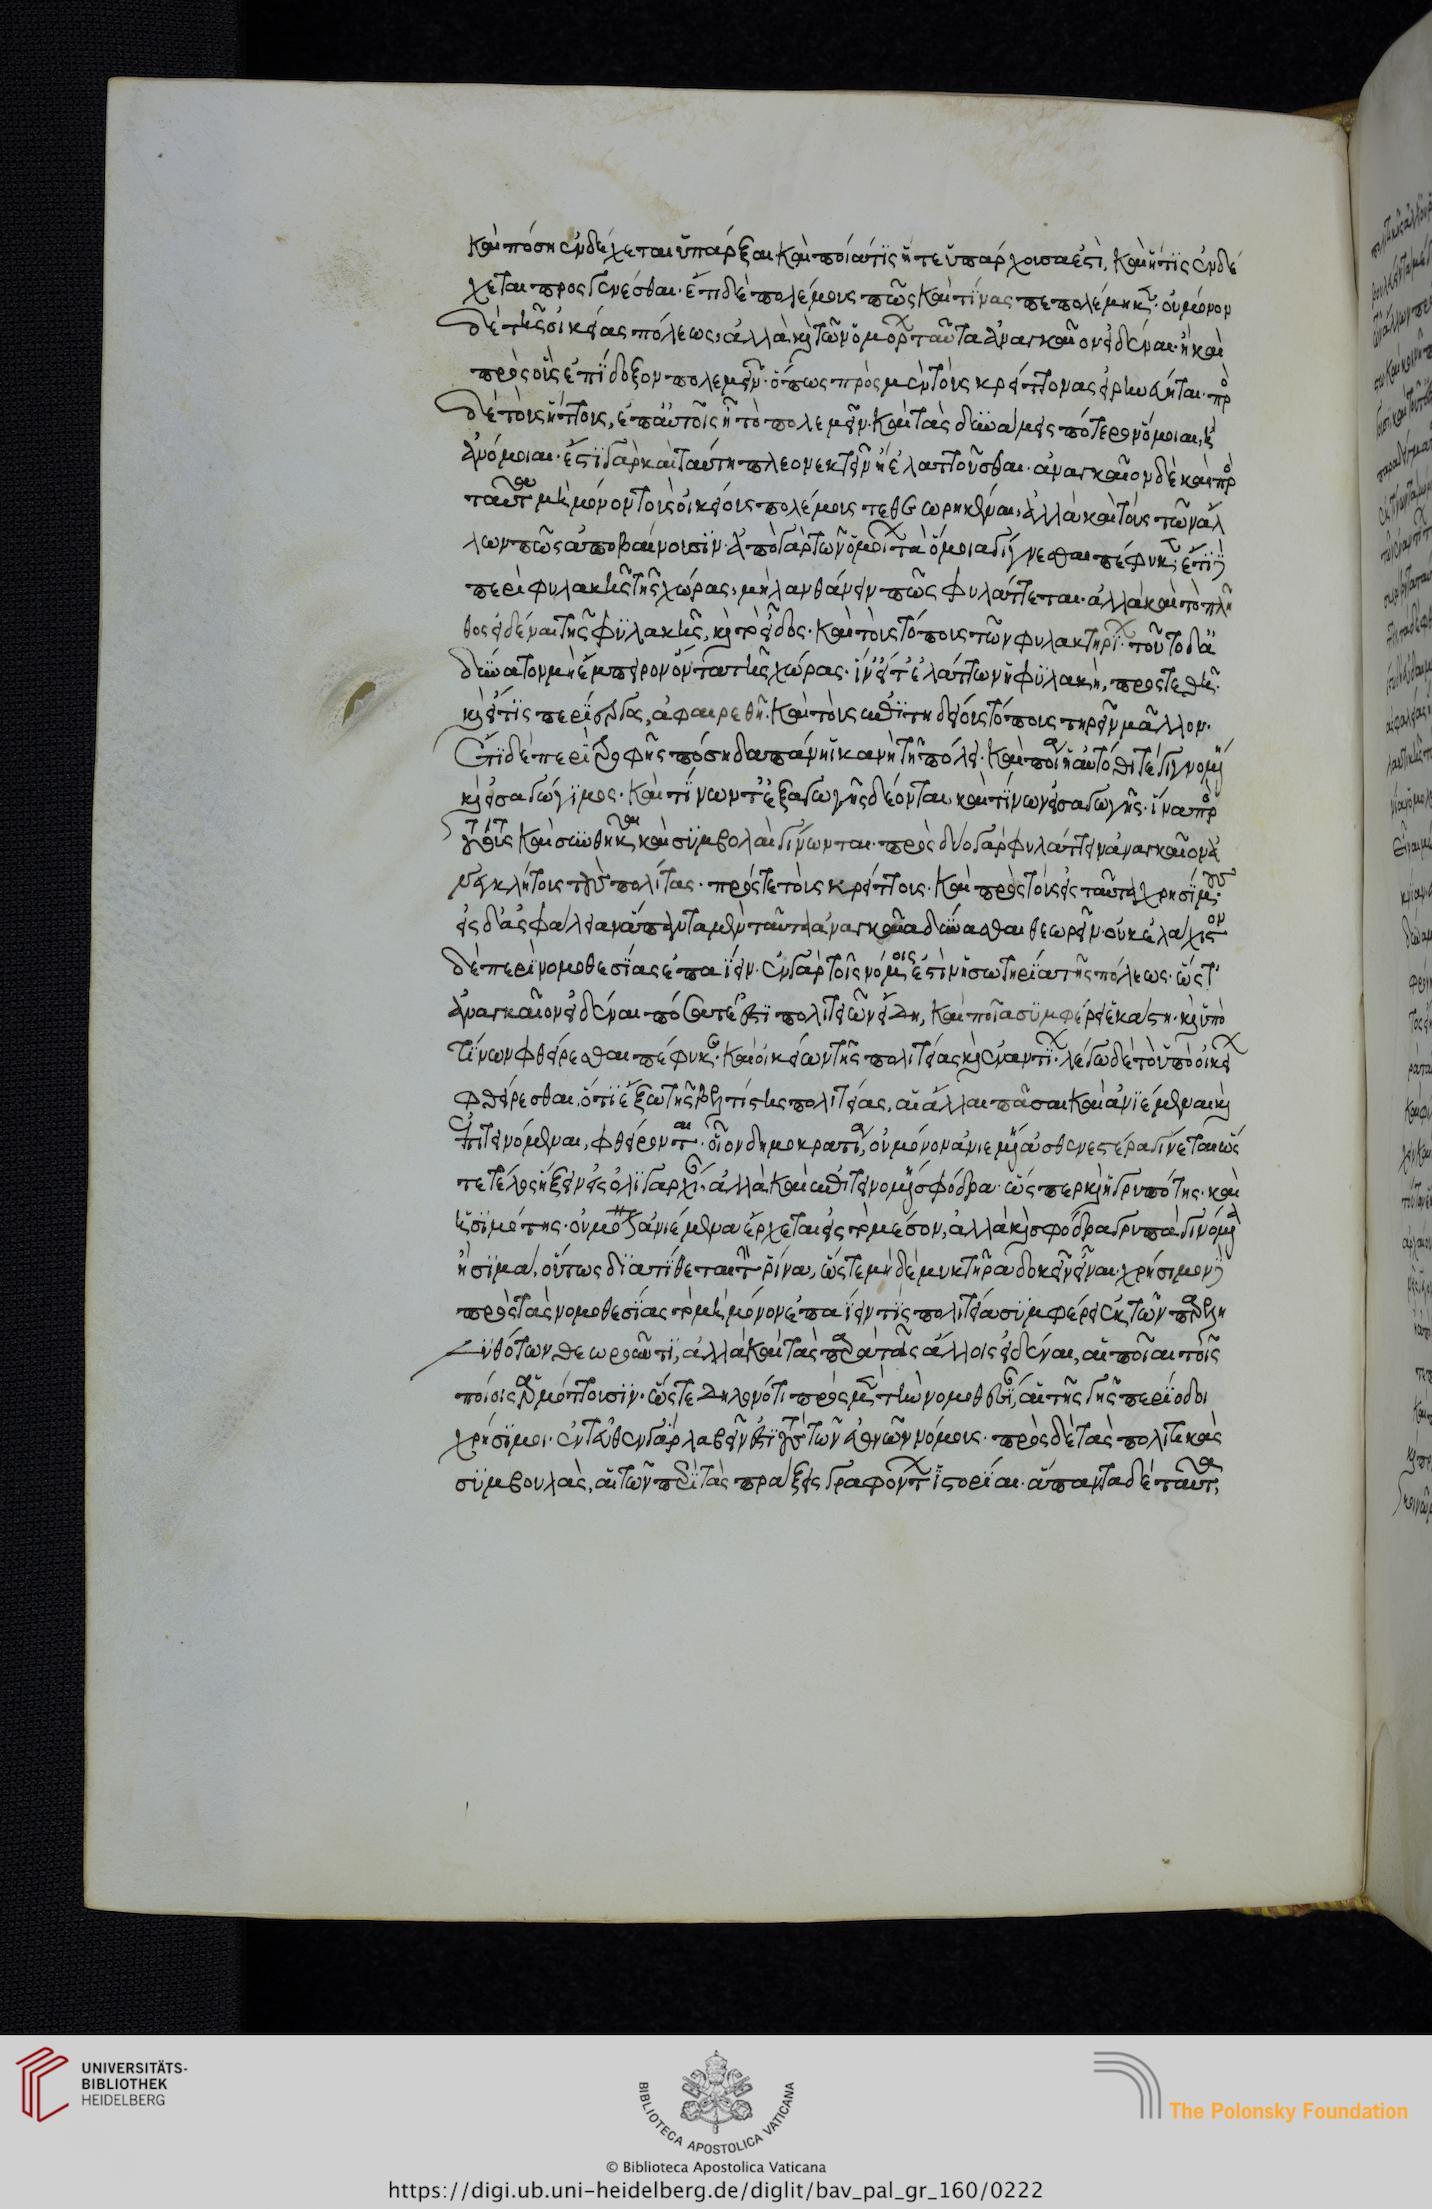 καὶ πόση ἐνδέχεται ὑπάρξαι καὶ ποία τὶς ἥ τε ὑπάρχουσα ἐστὶ, καὶ ἥτις ἐνδέ
χεται προσγενέσθαι. ἔτι δὲ πολέμους πῶς καὶ τίνας πεπολέμηκεν. οὐ μόνον
δὲ τῆς οἰκείας πόλεως, ἀλλὰ καὶ τῶν ὁμόρων ταῦτα ἀναγκαῖον εἰδέναι. ἢ καὶ
πρὸς οὓς ἐπίδοξον πολεμεῖν. ὅπως πρὸς μὲν τοὺς κρείττονας εἰρηνεύηται. πρὸς
δὲ τοὺς ἥττους, ἐπ' αὐτοῖς ᾖ τὸ πολεμεῖν. καὶ τὰς δυνάμεις πότερον ὅμοιαι, ἢ
ἀνόμοιαι. ἔστι γὰρ καὶ ταύτῃ πλεονεκτεῖν ἢ ἐλαττοῦσθαι. ἀναγκαῖον δὲ καὶ πρὸς
ταῦτα μὴ μόνον τοὺς οἰκείους πολέμους τεθεωρηκέναι, ἀλλὰ καὶ τοὺς τῶν ἄλ
λων πῶς ἀποβαίνουσιν. ἀπὸ γὰρ τῶν ὁμοίων τὰ ὅμοια γίγνεσθαι πέφυκεν. ἔτι δὲ
περὶ φυλακῆς τῆς χώρας, μὴ λανθάνειν πῶς φυλάττεται. ἀλλὰ καὶ τὸ πλῆ
θος εἰδέναι τῆς φυλακῆς, καὶ τὸ εἶδος. καὶ τοὺς τόπους τῶν φυλακτηρίων. τοῦτο δ' ἀ
δύνατον μὴ ἔμπειρον ὄντα τῆς χώρας. ἵν' εἴτ' ἐλάττων ἡ φυλακὴ, προστεθῇ.
καὶ εἴ τις περίεργος, ἀφαιρεθῇ. καὶ τοὺς ἐπιτηδείους τόπους τηρεῖν μᾶλλον.
Ἔτι δὲ περὶ τροφῆς πόση δαπάνη ἱκανὴ τῇ πόλει. καὶ ποία ἡ αὐτόθι τε γιγνομένη
καὶ εἰσαγώγιμος. καὶ τίνων τ' ἐξαγωγῆς δέονται, καὶ τίνων εἰσαγωγῆς. ἵνα πρὸς
τούτους καὶ συνθῆκαι καὶ συμβολαὶ γίνωνται. πρὸς δύο γὰρ φυλάττειν ἀναγκαῖον ἀ
νεγκλήτους τοὺς πολίτας. πρός τε τοὺς κρείττους. καὶ πρὸς τοὺς εἰς ταῦτα χρησίμους.
εἰς δ' ἀσφάλειαν ἅπαντα μὲν ταῦτα ἀναγκαῖα δύνασθαι θεωρεῖν. οὐκ ἐλάχιστον
δὲ περὶ νομοθεσίας ἐπαΐειν. ἐν γὰρ τοῖς νόμοις ἐστὶν ἡ σωτηρία τῆς πόλεως. ὥστ'
ἀναγκαῖον εἰδέναι πόσα τέ ἐστι πολιτειῶν εἴδη, καὶ ποῖα συμφέρει ἑκάστῃ. καὶ ὑπὸ
τίνων φθείρεσθαι πέφυκε. καὶ οἰκείων τῆς πολιτείας καὶ ἐναντίων. λέγω δὲ τὸ ὑπὸ οἰκείων
φθείρεσθαι, ὅτι ἔξω τῆς βελτίστης πολιτείας, αἱ ἄλλαι πᾶσαι καὶ ἀνιέμεναι καὶ
ἐπιτεινόμεναι, φθείρονται. οἷον δημοκρατία, οὐ μόνον ἀνιεμένη ἀσθενεστέρα γίνεται ὥσ
τε τέλος ἥξειν εἰς ὀλιγαρχίαν. ἀλλὰ καὶ ἐπιτεινομένη σφόδρα. ὥσπερ καὶ ἡ γρυπότης. καὶ
ἡ σιμότης. οὐ μόνον ἀνιέμενα ἔρχεται εἰς τὸ μέσον, ἀλλὰ καὶ σφόδρα γρυπὰ γινόμενα
ἢ σιμὰ, οὕτως διατίθεται τὴν ῥῖνα, ὥστε μηδὲ μυκτῆρα δοκεῖν εἶναι. χρήσιμον δὲ
πρὸς τὰς νομοθεσίας τὸ μὴ μόνον ἐπαΐειν τίς πολιτεία συμφέρει ἐκ τῶν παρελη
λυθότων θεωροῦντι, ἀλλὰ καὶ τὰς παρὰ τοῖς ἄλλοις εἰδέναι, αἱ ποῖαι τοῖς
ποίοις ἁρμόττουσιν. ὥστε δηλονότι πρὸς μὲν τὴν νομοθεσίαν, αἱ τῆς γῆς περίοδοι
χρήσιμοι. ἐντεῦθεν γὰρ λαβεῖν ἔστι τοὺς τῶν ἐθνῶν νόμους. πρὸς δὲ τὰς πολιτικὰς
συμβουλὰς, αἱ τῶν περὶ τὰς πράξεις γραφόντων ἱστορίαι. ἅπαντα δὲ ταῦτα,
UNIVERSITÄTS-
BIBLIOTHEK
HEIDELBERG
BIBLIOTECA APOSTOLICA VATICANA
The Polonsky Foundation
© Biblioteca Apostolica Vaticana
https://digi.ub.uni-heidelberg.de/diglit/bav_pal_gr_160/0222